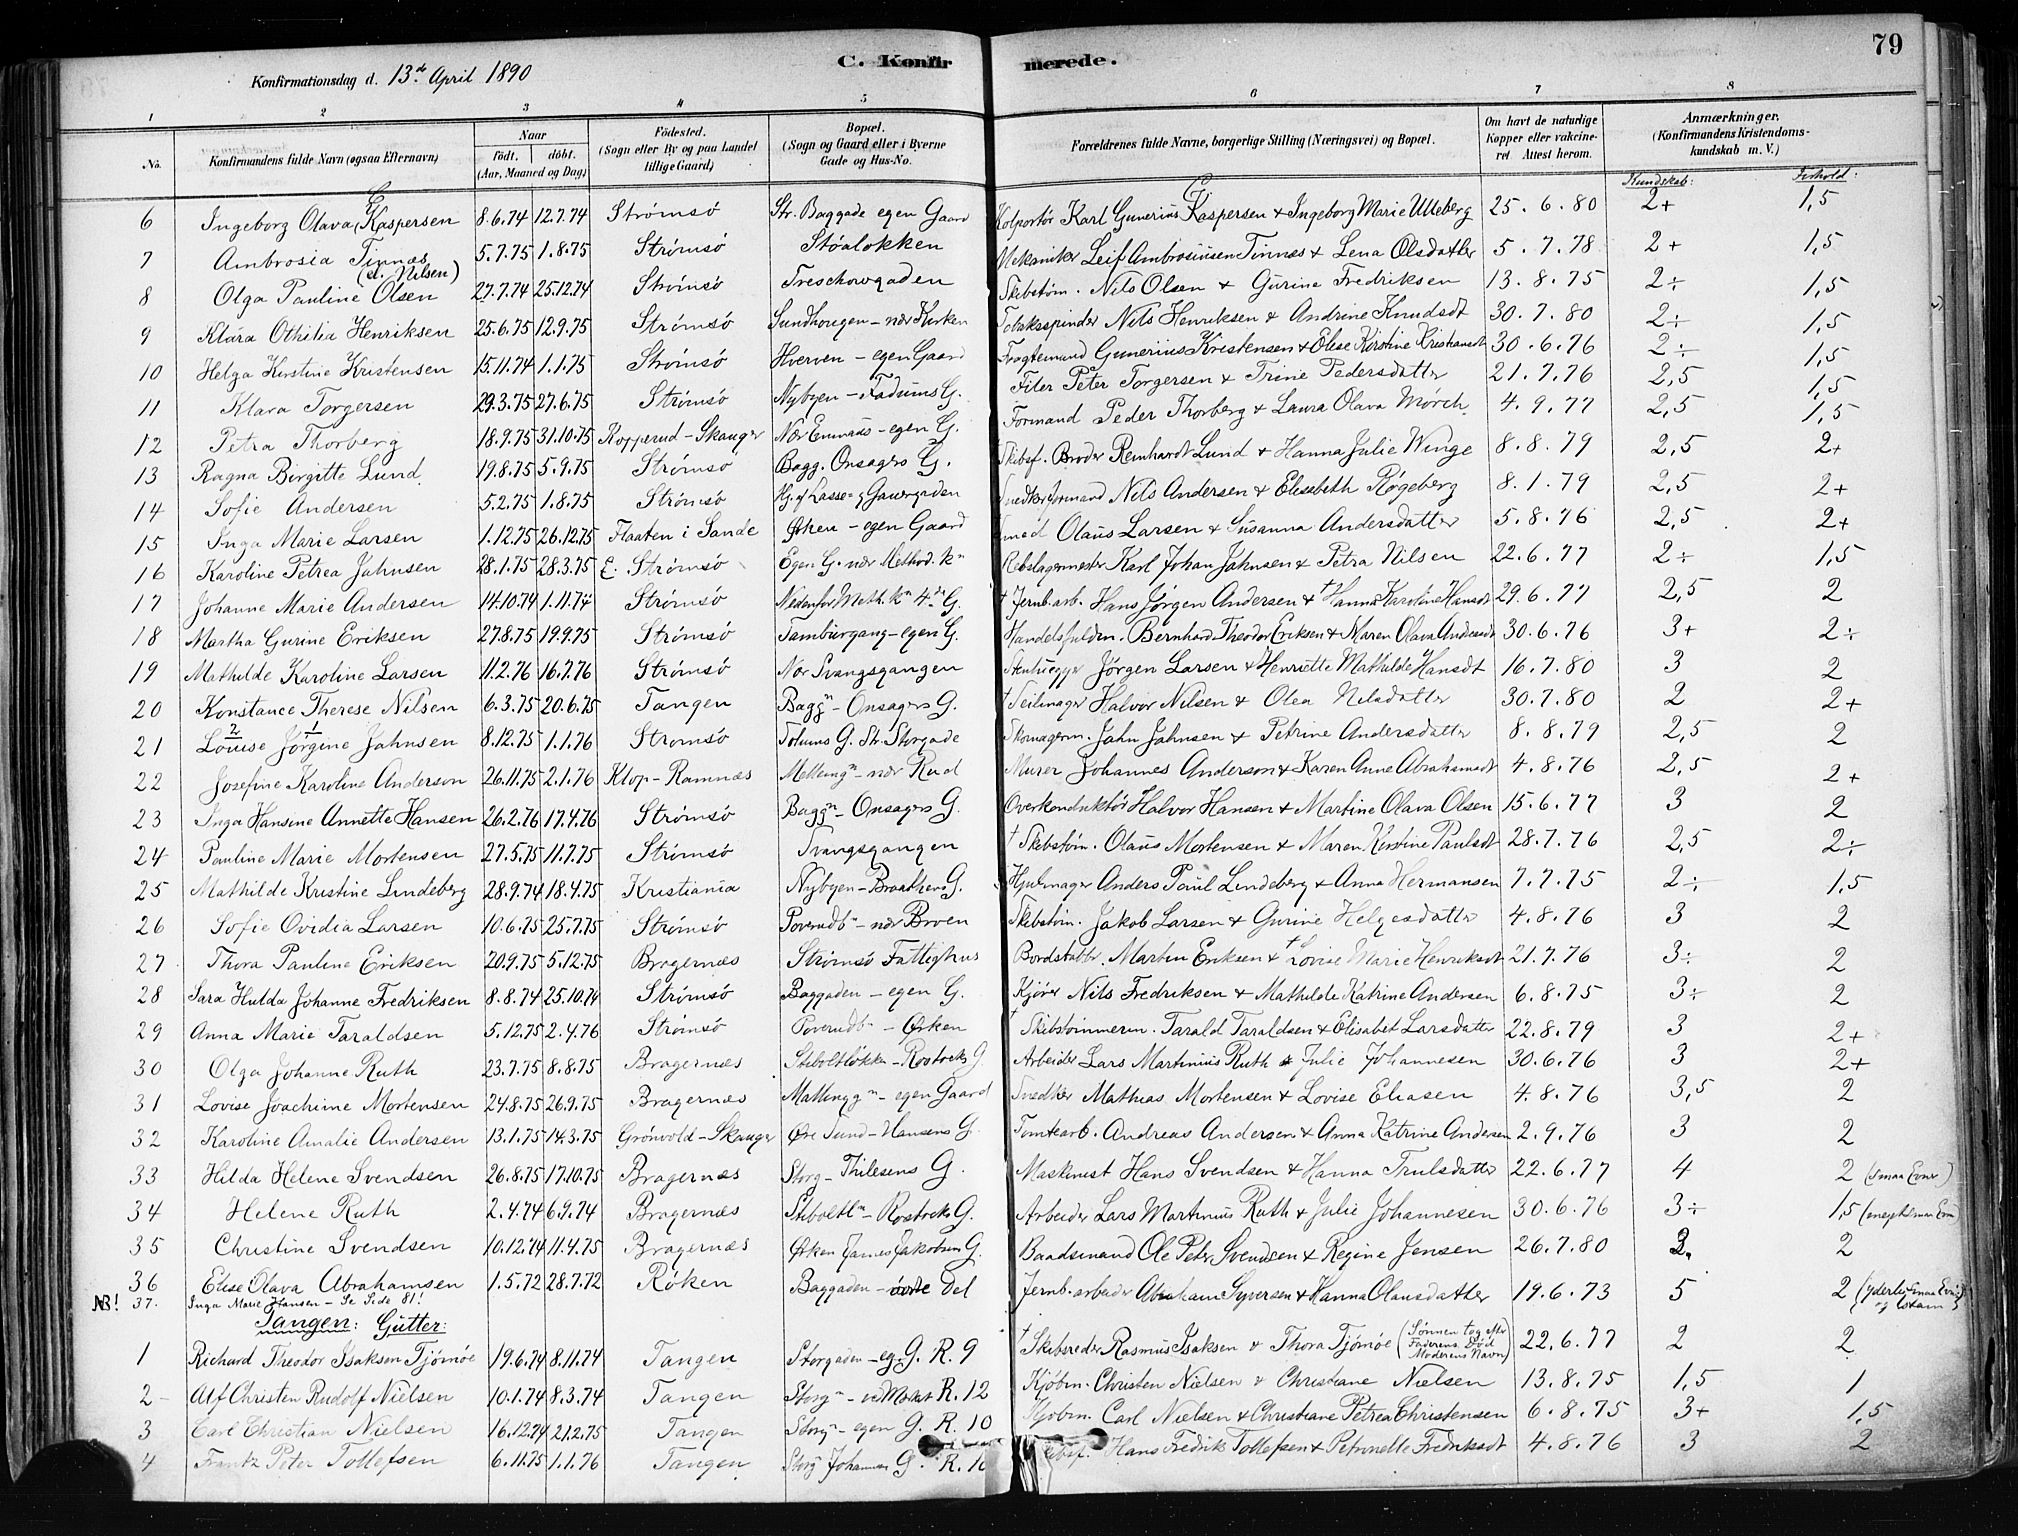 79
C. Konfirmerede.
Konfirmationsdag d. 13de April 1890
1 2 3 4 5 6 7 8
No. Konfirmandens fulde Navn (ogsaa Efternavn) Naar født, døbt. (Aar, Maaned og Dag) Fødested. (Sogn eller By og paa Landet tillige Gaard) Bopæl. (Sogn og Gaard eller i Byerne Gade og Hus-No. Forældrenes fulde Navne, borgerlige Stilling (Næringsvei) og Bopæl. Om havt de naturlige Kopper eller vaccineret Attest herom. Anmærkninger. (Konfirmandens Kristendomskundskab m. V.)
Kundskab: Forhold:
6 Ingeborg Olava Kaspersen 8.6.74 12.7.74 Strømsø Str. Baggade egen Gaard Kolportør Karl Gunerius Kaspersen & Ingeborg Marie Ulleberg 25.6.80 2+ 1,5
7 Ambrosia Tinnæs 5.7.75 1.8.75 Strømsø Støaløkken Mekaniker Leif Ambrosiussen Tinnæs & Lena Olsdatter 5.7.78 2+ 1,5
8 Olga Pauline Olsen (el. Nilsen) 27.7.74 25.12.74 Strømsø Treschowgaden Skibstøm. Nils Olsen & Gurine Fredriksen 13.8.75 2÷ 1,5
9 Klara Othilia Henriksen 25.6.75 12.9.75 Strømsø Sundhougen - nær Kirken Tobaksspinder Nils Henriksen & Andrine Knudsdt 30.7.80 2÷ 1,5
10 Helga Kirstine Kristensen 15.11.74 1.1.75 Strømsø Hverven - egen Gaard Fragtemand Gunerius Kristensen & Elise Kirstine Kristiansdt 30.6.76 2÷ 1,5
11 Klara Torgersen 29.3.75 27.6.75 Strømsø Nybyen - Fadums G. Filer Peter Torgersen & Trine Pedersdatter 21.7.76 2,5 1,5
12 Petra Thorberg 18.9.75 31.10.75 Kopperud - Skauger Nær Emmaus - egen G. Formand Peder Thorberg & Laura Olava Mørch. 4.9.77 2,5 1,5
13 Ragna Birgitte Lund. 19.8.75 5.9.75 Strømsø Bagg. Onsagers G. Skibsf. Broder Reinhardt Lund & Hanna Julie Winge 8.8.79 2,5 2+
14 Sofie Andersen 5.2.75 1.8.75 Strømsø Hj. af Lasse- og Gauergaden Snedkerformand Nils Andersen & Elisabeth Røgeberg 8.1.79 2,5 2+
15 Inga Marie Larsen 1.12.75 26.12.75 Flaaten i Sande Ørken - egen Gaard Smed Olaus Larsen & Susanna Andersdatter 5.8.76 2,5 2+
16 Karoline Petrea Jahnsen 28.1.75 28.3.75 E. Strømsø Egen G. nær Method. Kn Rebslagermester Karl Johan Jahnsen & Petra Nilsen 22.6.77 2÷ 1,5
17 Johanne Marie Andersen 14.10.74 1.11.74 Strømsø Nedenfor Meth. Kn 4de G. † Jernb. arb. Hans Jørgen Andersen & † Hanna Karoline Hansdt 29.6.77 2,5 2
18 Martha Gurine Eriksen 27.8.75 19.9.75 Strømsø Tamburgang - egen G. Handelsfuldm. Bernhard Theodor Eriksen & Maren Olava Andersdt 30.6.76 3+ 2÷
19 Mathilde Karoline Larsen 11.2.76 16.7.76 Strømsø Nær Svangsgangen Stenhugger Jørgen Larsen & Henriette Mathilde Hansdt 16.7.80 3 2
20 Konstance Therese Nilsen 6.3.75 20.6.75 Tangen Baggn - Onsagers G. † Seilmager Halvor Nilsen & Olea Nilsdatter 30.7.80 2 2+
21 Louise Jørgine Jahnsen 8.12.75 1.1.76 Strømsø Tofums G. Str. Storgade Skomagerm. Jahn Jahnsen & Petrine Andersdatter 8.8.79 2,5 2
22 Josefine Karoline Anderson 26.11.75 2.1.76 Klop - Ramnæs Mellemgn - nær Rud Murer Johannes Anderson & Karen Anne Abrahamsdt 4.8.76 2,5 2+
23 Inga Hansine Annette Hansen 26.2.76 17.4.76 Strømsø Baggn - Onsagers G. Overkonduktør Halvor Hansen & Martine Olava Olsen 15.6.77 3 2
24 Pauline Marie Mortensen 27.5.75 11.7.75 Strømsø Svangsgangen † Skibstøm. Olaus Mortensen & Maren Kirstine Paulsdt 28.7.76 2,5 2÷
25 Mathilde Kristine Lindeberg 28.9.74 18.4.75 Kristiania Nybyen - Braathens G. Hjulmager Anders Paul Lindeberg & Anna Hermansen 7.7.75 2÷ 1,5
26 Sofie Ovidia Larsen 10.6.75 25.7.75 Strømsø Poverudbn - nær Broen Skibstøm. Jakob Larsen & Gurine Helgesdatter 4.8.76 3 2
27 Thora Pauline Eriksen 20.9.75 5.12.75 Bragernæs Strømsø Fattighus Bordstabbr. Martin Eriksen & † Lovise Marie Henriksdt 21.7.76 3÷ 2
28 Sara Hulda Johanne Fredriksen 8.8.74 25.10.74 Strømsø Baggaden - egen G. Kjører Nils Fredriksen & Mathilde Katrine Andersen 6.8.75 3÷ 2
29 Anna Marie Taraldsen 5.12.75 2.4.76 Strømsø Poverudbn - Ørken † Skibstømmerm. Tarald Taraldsen & Elisabet Larsdatter 22.8.79 3 2+
30 Olga Johanne Ruth 23.7.75 8.8.75 Bragernæs Stiboltløkken - Rostocks G. Arbeider Lars Martinius Ruth & Julie Johannesen 30.6.76 3 2+
31 Lovise Joachime Mortensen 24.8.75 26.9.75 Bragernæs Mellemgn - egen Gaard Snedker Mathias Mortensen & Lovise Eliasen 4.8.76 3,5 2
32 Karoline Amalie Andersen 13.1.75 14.3.75 Grønvold - Skauger Øre Sund - Hansens G. Tomtearb. Andreas Andersen & Anna Katrine Andersen 2.9.76 3 2
33 Hilda Helene Svendsen 26.8.75 17.10.75 Bragernæs Storg - Thilesens G. Maskinist Hans Svendsen & Hanna Trulsdatter 22.6.77 4 2 (smaa Evner)
34 Helene Ruth 2.4.74 6.9.74 Bragernæs Stiboltln - Rostocks G. Arbeider Lars Martinius Ruth & Julie Johannesen 30.6.76 3÷ 1,5 (meget smaa Evn)
35 Christine Svendsen 10.12.74 11.4.75 Bragernæs Ørken James Jakobsens G. Baadsmand Ole Peter Svendsen & Regine Jensen 26.7.80 3. 2
36 Elise Olava Abrahamsen 1.5.72 28.7.72 Røken Baggaden - øvre Del Jernb. arbeider Abraham Syversen & Hanna Olausdatter 19.6.73 5 2 (yderlig smaa Evner
NB! 37. Inga Marie Hansen - Se Side 81!
Tangen: Gutter:
1 Richard Theodor Isaksen Tjømøe 19.6.74 8.11.74 Tangen Storgaden - eg. G. R. 9 † Skibsreder Rasmus Isaksen & Thora Tjømøe (Sønnen tog efter Faderens Død Moderens Navn) 22.6.77 2 2
2 Alf Christen Rudolf Nielsen 10.1.74 8.3.74 Tangen Storgn - ved Molket R. 12 Kjøbm. Christen Nielsen & Christiane Nielsen 13.8.75 1,5 1
3 Carl Christian Nielsen 16.12.74 21.2.75 Tangen Storgn - egen G. R. 10 Kjøbm. Carl Nielsen & Christiane Petrea Christensen 6.8.75 3+ 1,5
4 Frantz Peter Tollefsen 6.11.75 1.1.76 Tangen Storg Johannsen G. R. Skibsf. Hans Fredrik Tollefsen & Petronelle Fredriksdt 4.8.76 3 2